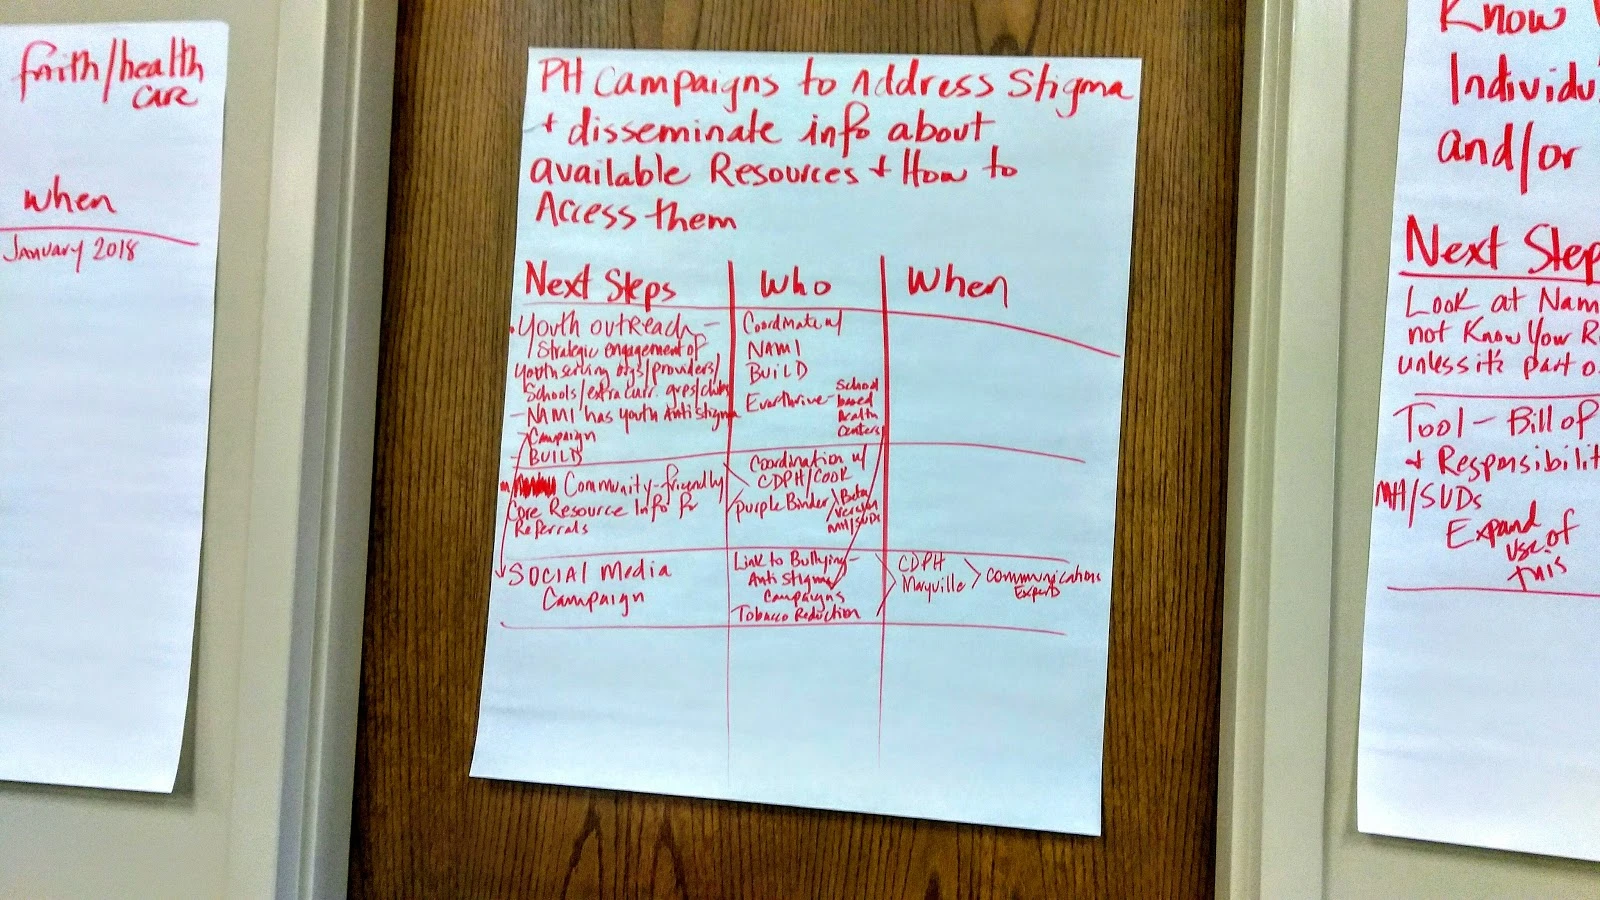 faith/health
care
when
January 2018
PH Campaigns to Address Stigma
+ disseminate info about
available Resources + How to
Access them
Next Steps
Who
When
• Youth outreach –
Strategic engagement of
Youth serving orgs/providers/
Schools/extra curr. grps/clubs
– NAMI has youth Anti Stigma
Campaign
– BUILD
Coordinate w/
NAMI
BUILD
Everthrive – School
based
health
centers
Community-friendly
Core Resource Info for
Referrals
Coordination w/
CDPH/COOK
Purple Binder
Beta
version
MH/SUDs
Social Media
Campaign
Link to Bullying –
Anti Stigma
Campaigns
Tobacco Reduction
CDPH
Maryville
Communications
Experts
Know
Individu
and/or
Next Step
Look at Nam
not Know Your R
unless it's part o
Tool – Bill of
+ Responsibilit
MH/SUDs
Expand
use of
this